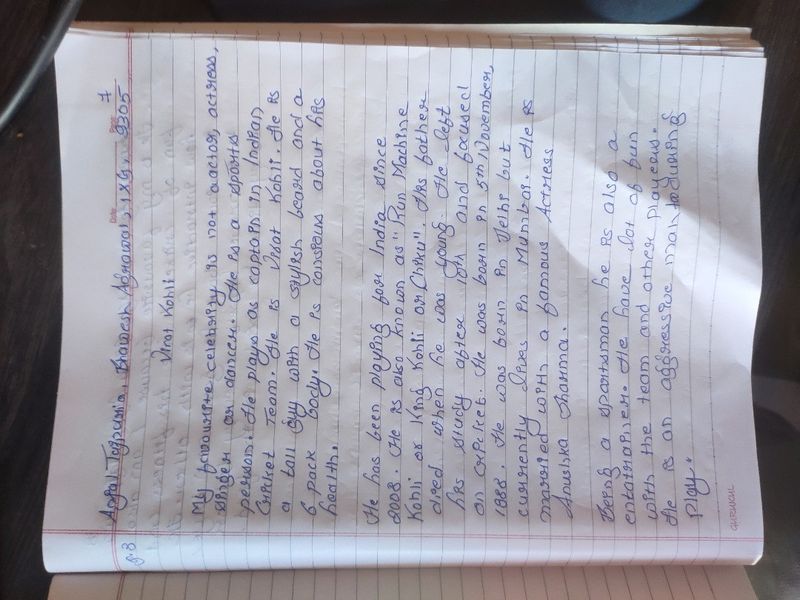 Date
Page 7
Anjali Togpuria, Bhawesh Agrawal, 1 X G, 9305
g.8
Virat Kohli
My favourite celebrity is not actor, actress,
singer or dancer. He is a sports
person. He plays as captain in Indian
Cricket Team. He is Virat Kohli. He is
a tall guy with a stylish beard and a
6 pack body. He is consious about his
health.
He has been playing for India since
2008. He is also known as "Run Machine
Kohli or King Kohli or Chiku". His father
died when he was young. He left
his study after 12th and focused
on cricket. He was born in 5th November,
1988. He was born in Delhi but
currently lives in Mumbai. He is
married with a famous Actress
Anushka Sharma.
Being a sportsman he is also a
entertainer. He have lot of fun
with the team and other players.
He is an aggressive man during
play.